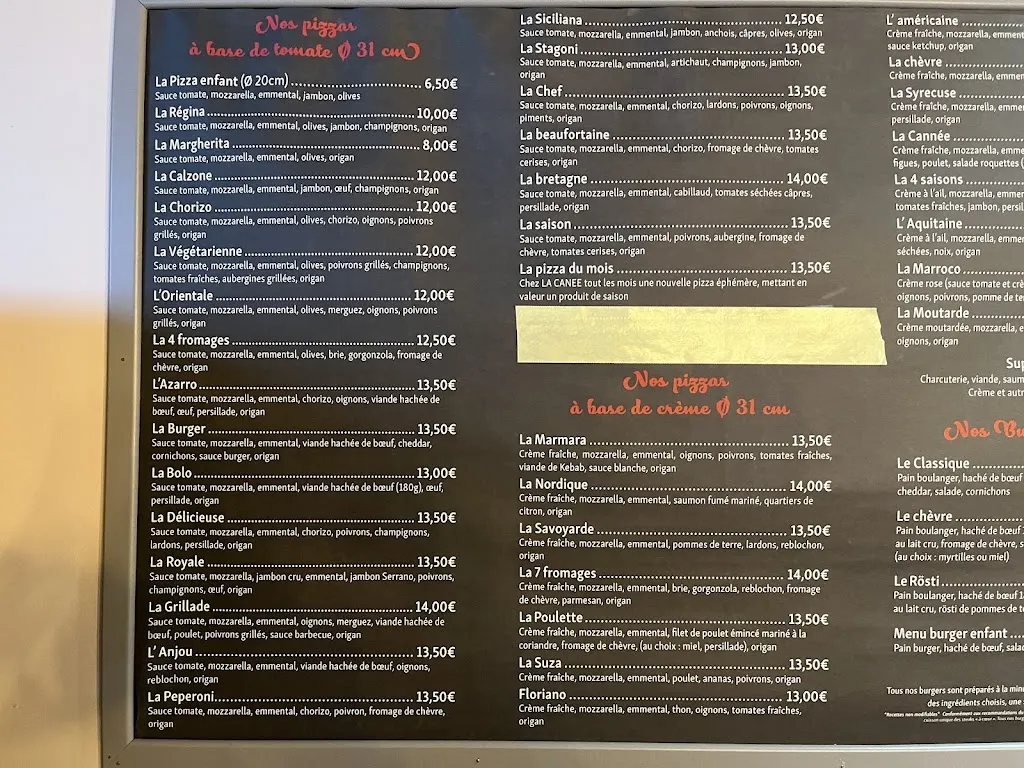 Nos pizzas
à base de tomate Ø 31 cm
La Pizza enfant (Ø 20cm) 6,50€
Sauce tomate, mozzarella, emmental, jambon, olives
La Régina 10,00€
Sauce tomate, mozzarella, emmental, olives, jambon, champignons, origan
La Margherita 8,00€
Sauce tomate, mozzarella, emmental, olives, origan
La Calzone 12,00€
Sauce tomate, mozzarella, emmental, jambon, œuf, champignons, origan
La Chorizo 12,00€
Sauce tomate, mozzarella, emmental, olives, chorizo, oignons, poivrons
grillés, origan
La Végétarienne 12,00€
Sauce tomate, mozzarella, emmental, olives, poivrons grillés, champignons,
tomates fraîches, aubergines grillées, origan
L'Orientale 12,00€
Sauce tomate, mozzarella, emmental, olives, merguez, oignons, poivrons
grillés, origan
La 4 fromages 12,50€
Sauce tomate, mozzarella, emmental, olives, brie, gorgonzola, fromage de
chèvre, origan
L'Azarro 13,50€
Sauce tomate, mozzarella, emmental, chorizo, oignons, viande hachée de
bœuf, œuf, persillade, origan
La Burger 13,50€
Sauce tomate, mozzarella, emmental, viande hachée de bœuf, cheddar,
cornichons, sauce burger, origan
La Bolo 13,00€
Sauce tomate, mozzarella, emmental, viande hachée de bœuf (180g), œuf,
persillade, origan
La Délicieuse 13,50€
Sauce tomate, mozzarella, emmental, chorizo, poivrons, champignons,
lardons, persillade, origan
La Royale 13,50€
Sauce tomate, mozzarella, jambon cru, emmental, jambon Serrano, poivrons,
champignons, œuf, origan
La Grillade 14,00€
Sauce tomate, mozzarella, emmental, oignons, merguez, viande hachée de
bœuf, poulet, poivrons grillés, sauce barbecue, origan
L' Anjou 13,50€
Sauce tomate, mozzarella, emmental, viande hachée de bœuf, oignons,
reblochon, origan
La Peperoni 13,50€
Sauce tomate, mozzarella, emmental, chorizo, poivron, fromage de chèvre,
origan
La Siciliana 12,50€
Sauce tomate, mozzarella, emmental, jambon, anchois, câpres, olives, origan
La Stagoni 13,00€
Sauce tomate, mozzarella, emmental, artichaut, champignons, jambon,
origan
La Chef 13,50€
Sauce tomate, mozzarella, emmental, chorizo, lardons, poivrons, oignons,
piments, origan
La beaufortaine 13,50€
Sauce tomate, mozzarella, emmental, chorizo, fromage de chèvre, tomates
cerises, origan
La bretagne 14,00€
Sauce tomate, mozzarella, emmental, cabillaud, tomates séchées câpres,
persillade, origan
La saison 13,50€
Sauce tomate, mozzarella, emmental, poivrons, aubergine, fromage de
chèvre, tomates cerises, origan
La pizza du mois 13,50€
Chez LA CANEE tout les mois une nouvelle pizza éphémère, mettant en
valeur un produit de saison
Nos pizzas
à base de crème Ø 31 cm
La Marmara 13,50€
Crème fraîche, mozzarella, emmental, oignons, poivrons, tomates fraîches,
viande de Kebab, sauce blanche, origan
La Nordique 14,00€
Crème fraîche, mozzarella, emmental, saumon fumé mariné, quartiers de
citron, origan
La Savoyarde 13,50€
Crème fraîche, mozzarella, emmental, pommes de terre, lardons, reblochon,
origan
La 7 fromages 14,00€
Crème fraîche, mozzarella, emmental, brie, gorgonzola, reblochon, fromage
de chèvre, parmesan, origan
La Poulette 13,50€
Crème fraîche, mozzarella, emmental, filet de poulet émincé mariné à la
coriandre, fromage de chèvre, (au choix : miel, persillade), origan
La Suza 13,50€
Crème fraîche, mozzarella, emmental, poulet, ananas, poivrons, origan
Floriano 13,00€
Crème fraîche, mozzarella, emmental, thon, oignons, tomates fraîches,
origan
L' américaine
Crème fraîche, mozzarella,
sauce ketchup, origan
La chèvre
Crème fraîche, mozzarella,
La Syrecuse
Crème fraîche, mozzarella,
persillade, origan
La Cannée
Crème fraîche, mozzarella,
figues, poulet, salade roquettes
La 4 saisons
Crème à l'ail, mozzarella,
tomates fraîches, jambon,
L' Aquitaine
Crème à l'ail, mozzarella,
séchées, noix, origan
La Marroco
Crème rose (sauce tomate et
oignons, poivrons, pomme de
La Moutarde
Crème moutardée, mozzarella,
oignons, origan
Charcuterie, viande,
Crème et
Nos
Le Classique
Pain boulanger, haché de bœuf
cheddar, salade, cornichons
Le chèvre
Pain boulanger, haché de bœuf
au lait cru, fromage de chèvre,
(au choix : myrtilles ou miel)
Le Rösti
Pain boulanger, haché de bœuf
au lait cru, rösti de pommes de
Menu burger enfant
Pain burger, haché de bœuf,
Tous nos burgers sont préparés à la
des ingrédients choisis, une